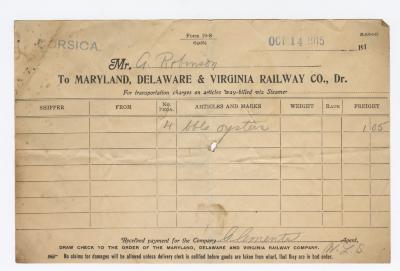 Form 19-S
CORSICA.
OCT 14 1915
191
Mr. G. Robinson
To MARYLAND, DELAWARE & VIRGINIA RAILWAY CO., Dr.
For transportation charges on articles way-billed via Steamer
SHIPPER FROM No. PKGS. ARTICLES AND MARKS WEIGHT RATE FREIGHT
4 bbls oysters 1 05
Received payment for the Company, Agent,
W.L.S.
DRAW CHECK TO THE ORDER OF THE MARYLAND, DELAWARE AND VIRGINIA RAILWAY COMPANY.
No claims for damages will be allowed unless delivery clerk is notified before goods are taken from wharf, that they are in bad order.